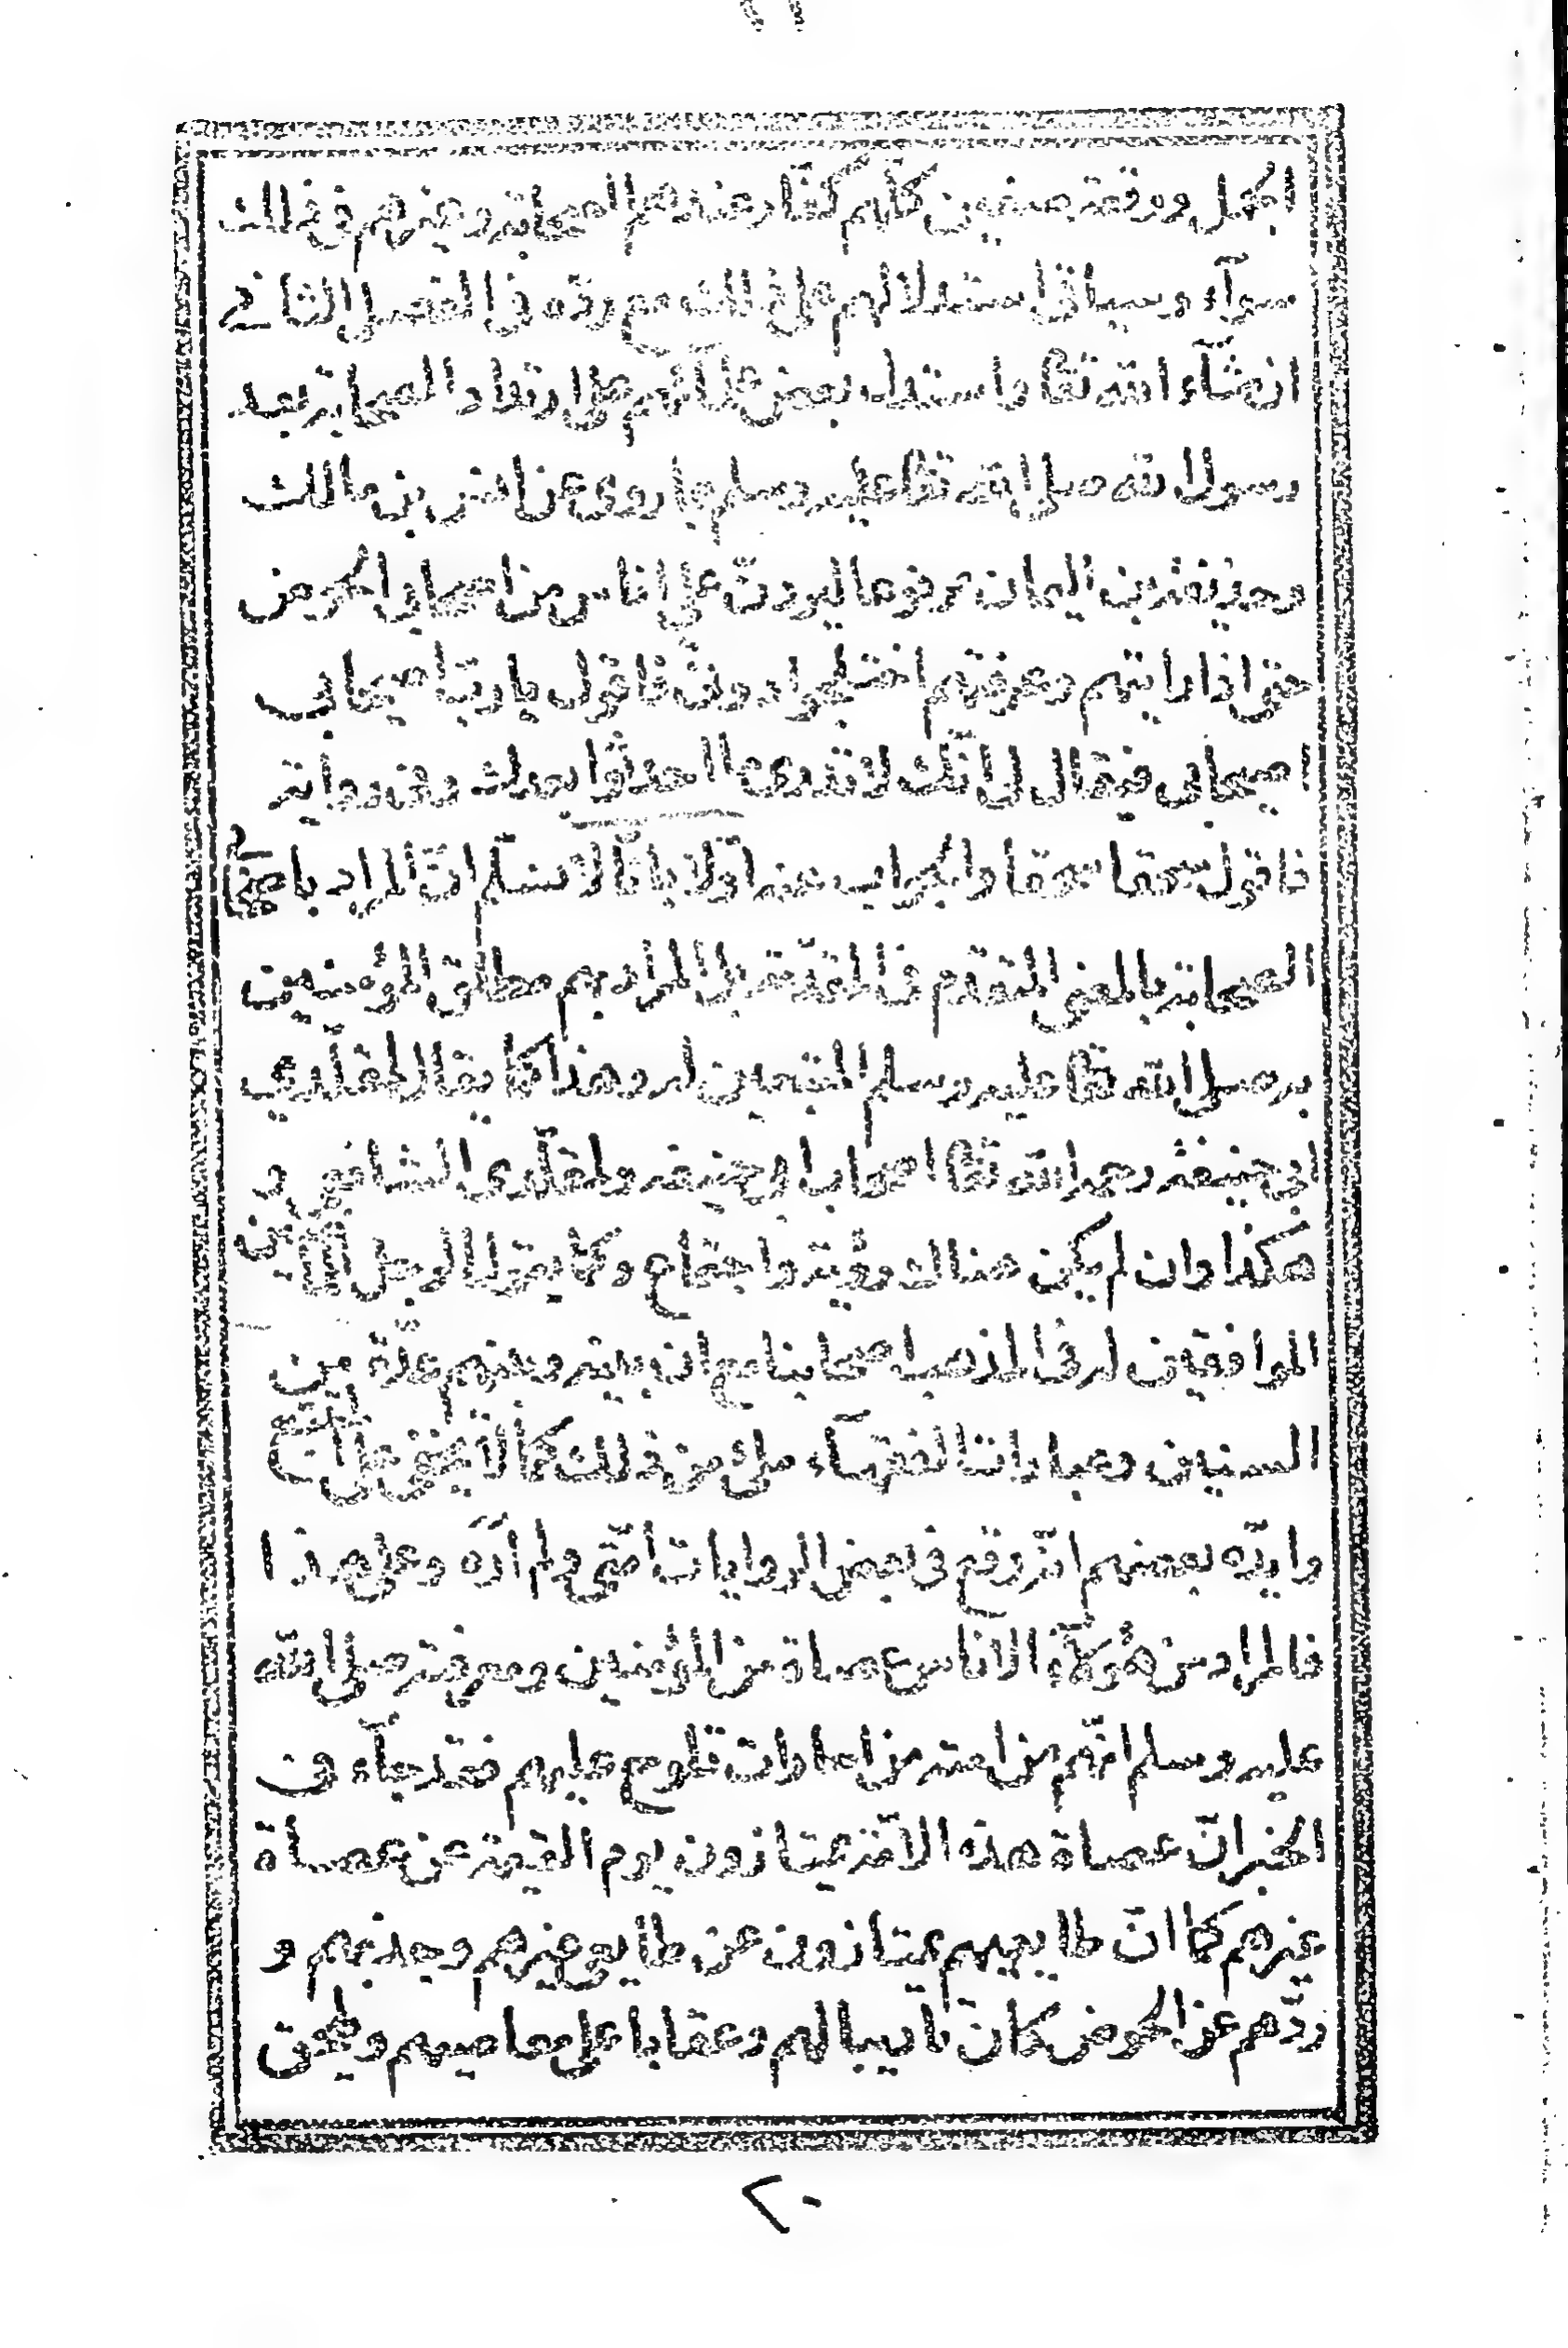 الجمل ووقعة صفين كلهم كفار عندهم الصحابة وغيرهم في ذلك
سوآء وسياتي استدلالهم على ذلك مع رده في الفصل الثاني
ان شآء الله تعا واستدل بعض علمآئهم على ارتداد الصحابة بعد
رسول الله صلى الله تعا عليه وسلم بما روي عن انس بن مالك
وحذيفة بن اليمان مرفوعا ليردنّ عليّ اناس من اصحابي الحوض
حتى اذا رايتهم وعرفتهم اختلجوا دوني فاقول يا ربّ اصيحابي
اصيحابي فيقال لي انّك لا تدري ما احدثوا بعدك وفي رواية
فاقول سحقا سحقا والجواب عنه اوّلا بانّا لا نسلّم انّ المراد باصحابي
الصحابة بالمعنى المتقدّم في المقدّمة بل المراد بهم مطلق المؤمنين
به صلى الله تعا عليه وسلم المتبعين له وهذا كما يقال لمقلّدي
ابي حنيفة رحمه الله تعا اصحاب ابي حنيفة ولمقلّدي الشافعي
هكذا وان لم يكن هناك رؤية واجتماع وكما يقول الرجل
الموافقين له في المذهب اصحابنا مع ان بينه وبينهم عدّة من
السنين وعبارات الفقهآء ملئ من ذلك كما لا يخفى على
وايّده بعضهم انّه وقع في بعض الروايات امّتي
فالمراد من هؤلآء الاناس عصاة من المؤمنين ومعرفته صلى الله
عليه وسلم انّهم من امته من امارات تلوح عليهم فقد جآء في
الخبر انّ عصاة هذه الامّة يمتازون يوم القيمة عن عصاة
غيرهم كما انّ طايعيهم يمتازون عن طايعي غيرهم وجذبهم و
ردّهم عن الحوض كان تاديبا لهم وعقابا على معاصيهم
٢٠